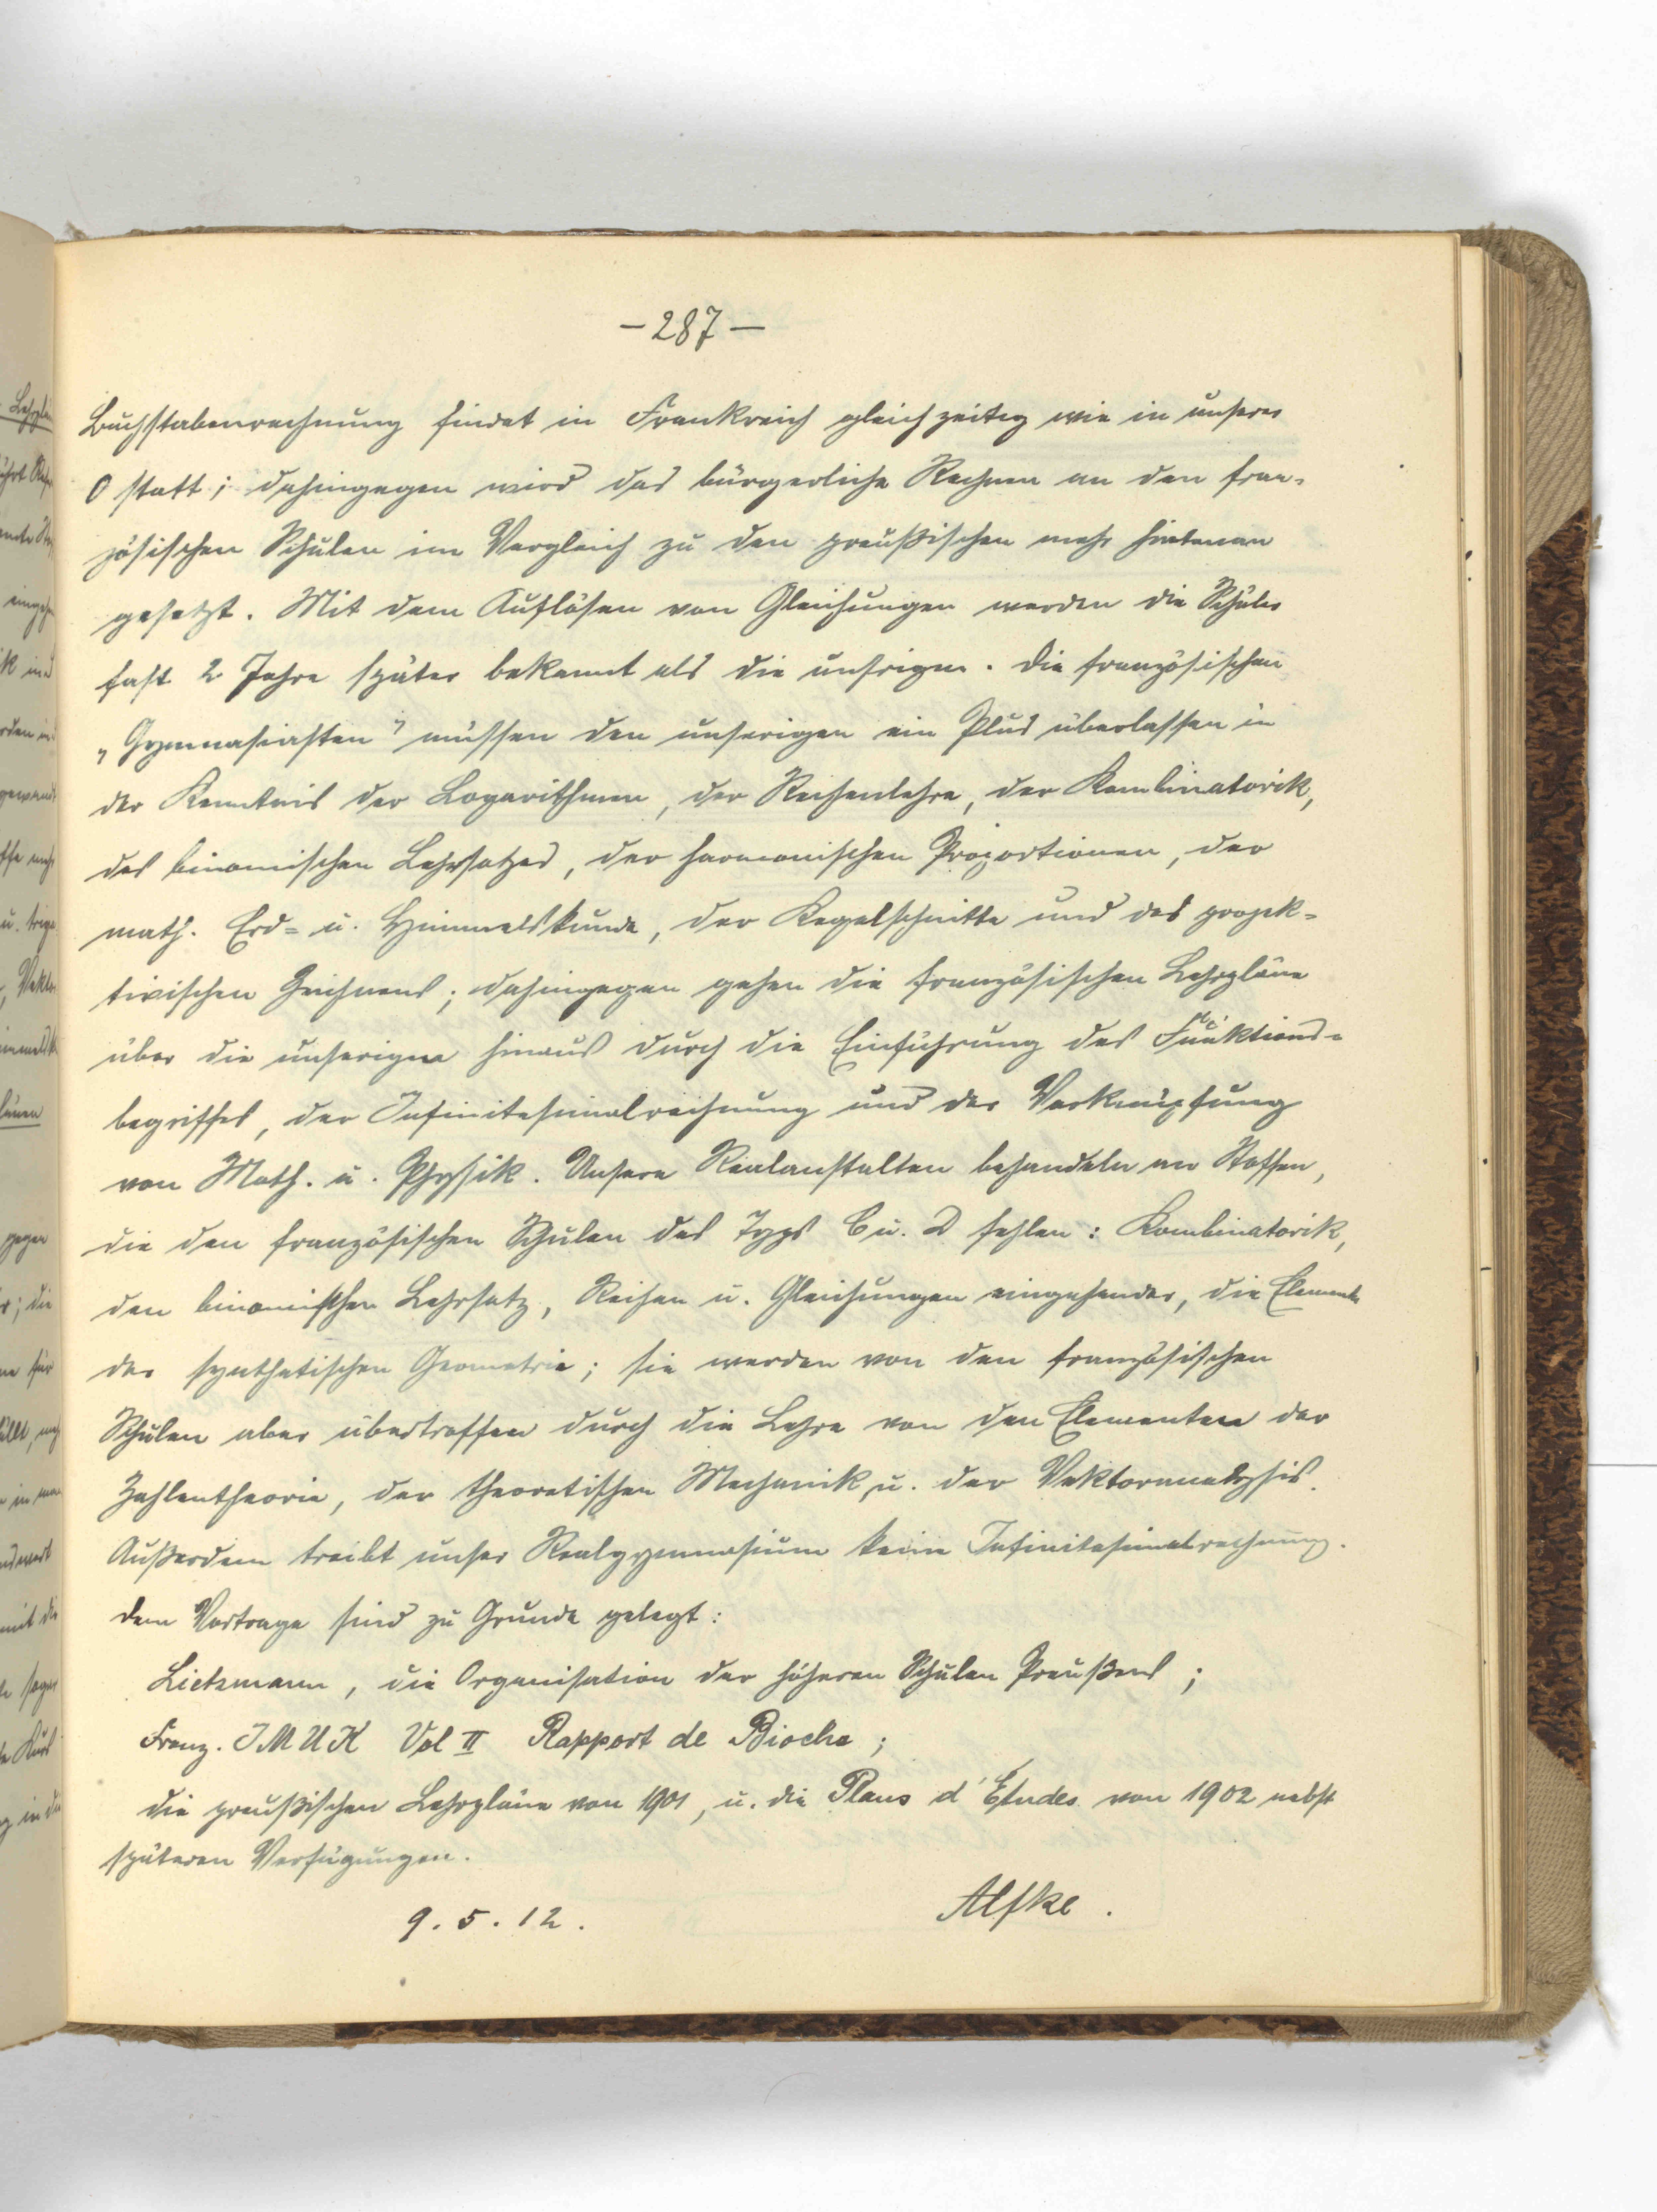 - 287 -
Buchstabenrechnung findet in Frankreich gleichzeitig wie in unserer
O statt; dahingegen wird das bürgerliche Rechnen an den fran-
zösischen Schulen im Vergleich zu den preußischen mehr hintenan
gesetzt. Mit dem Auflösen von Gleichungen werden die Schüler
fast 2 Jahre später bekannt als die unsrigen. Die französischen
„Gymnasiasten" müssen den unserigen ein Plus überlassen in
der Kenntnis der Logarithmen, der Reihenlehre, der Kombinatorik,
des binomischen Lehrsatzes, der harmonischen Proportionen, der
math. Erd- u. Himmelskunde, der Kegelschnitte und des projek-
tivischen Zeichnens; dahingegen gehen die französischen Lehrpläne
über die unserigen hinaus durch die Einführung des Funktions-
begriffes, der Infinitesimalrechnung und der Verknüpfung
von Math. u. Physik. Unsere Realanstalten behandeln an Stoffen,
die den französischen Schulen des Typs C u. D fehlen: Kombinatorik,
den binomischen Lehrsatz, Reihen u. Gleichungen eingehender, die Elemente
der synthetischen Geometrie; sie werden von den französischen
Schulen aber übertroffen durch die Lehre von den Elementen der
Zahlentheorie, der theoretischen Mechanik, u. der Vektoranalysis.
Außerdem treibt unser Realgymnasium keine Infinitesimalrechnung.
Dem Vortrage sind zu Grunde gelegt:
Lietzmann, die Organisation der höheren Schulen Preußens;
Franz. IMUK Vol II Rapport de Bioche;
die preußischen Lehrpläne von 1901, u. die Plans d'Etudes von 1902 nebst
späteren Verfügungen.
9.5.12. Alfke.